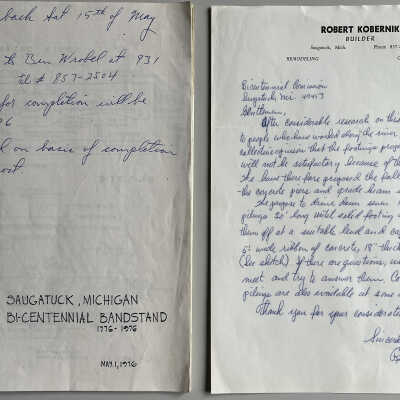 back Sat 15th of May
th Ben Wrobel at 931
tel # 857-2504
for completion will be
76
d on basis of completion
cost
SAUGATUCK, MICHIGAN
BI-CENTENNIAL BANDSTAND
1776-1976
MAY 1, 1976
ROBERT KOBERNIK
BUILDER
Saugatuck, Mich. Phone 857-
REMODELING
Bicentennial Commision
Saugatuck, Mi.
Gentlemen,
After considerable research on this
to people who have worked along the river
conclusion that the footings propo
will not be satisfactory because of th
We have therefore proposed the foll
the concrete piers and grade beam
We propose to drive down seven
pilings 20' long until solid footing
them off at a suitable level and ca
5' wide ribbon of concrete, 18" thick
(see sketch) If there are questions, we
meet and try to answer them. Co
pilings are also available at some
Thank you for your considerat
Sincere